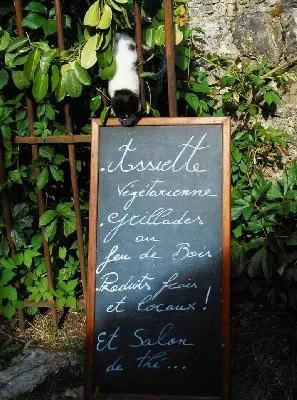 . Assiette
Végétarienne
. grillades
au
feu de Bois
Produits frais
et locaux !
Et Salon
de thé...